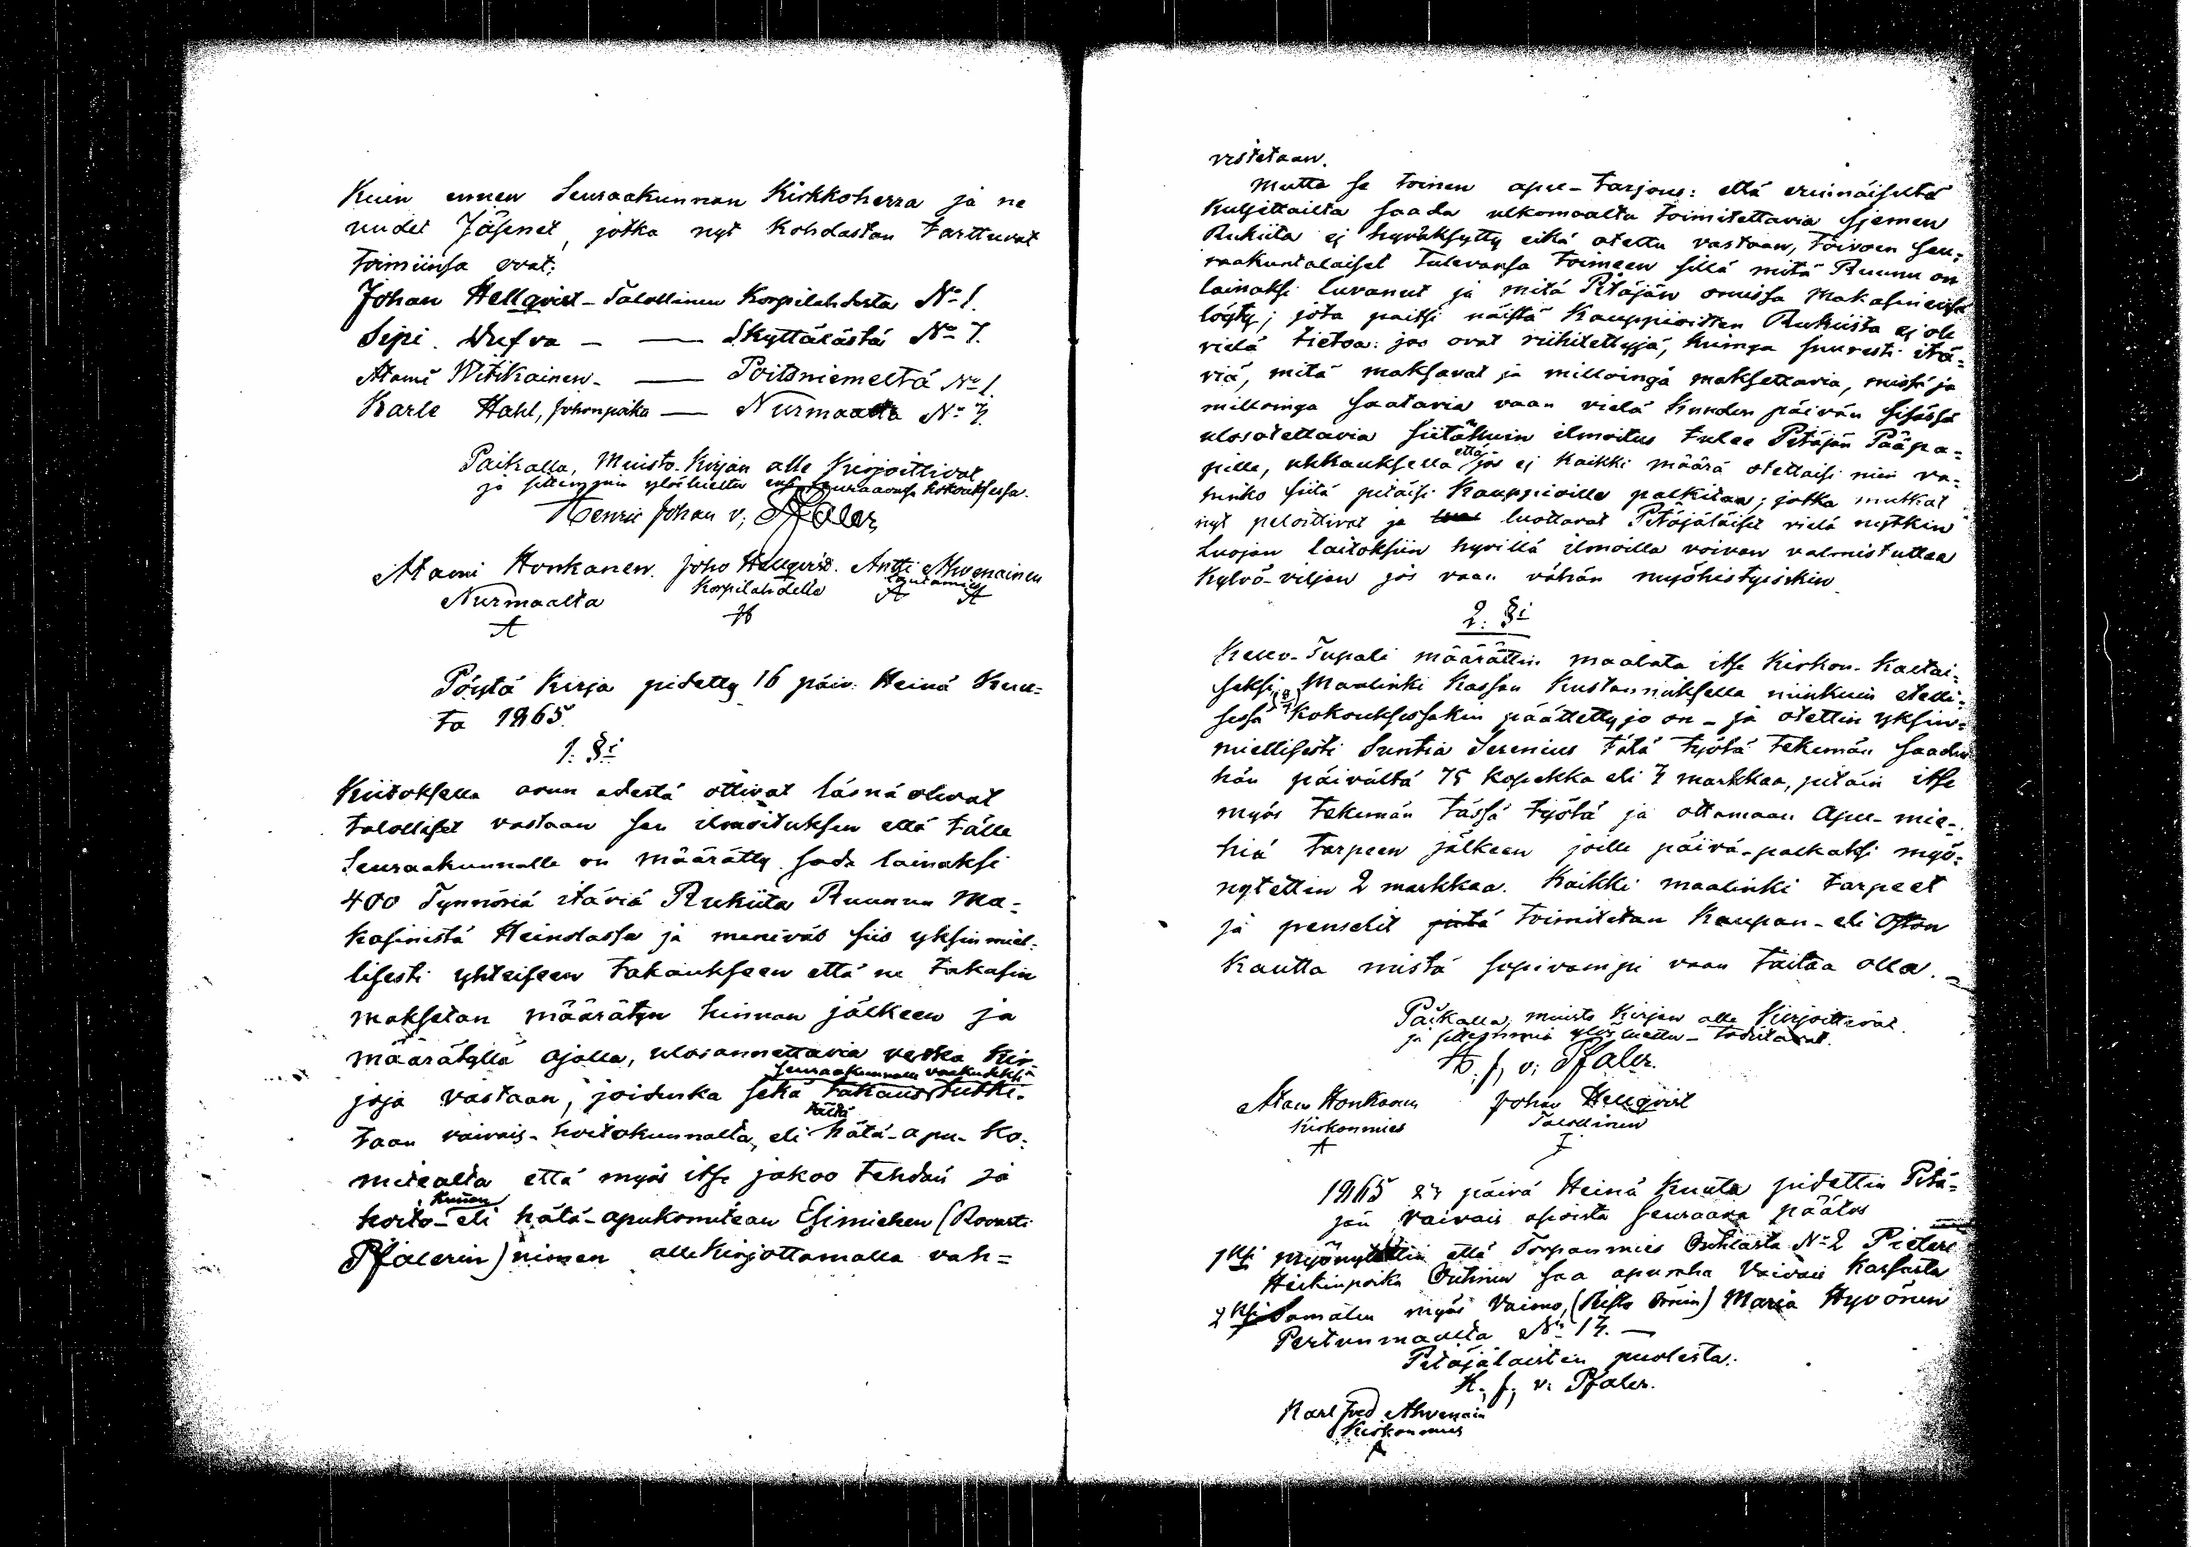 Kuin ennen Seuraakunnan Kirkkoherra ja ne
uudet Jäsenet, jotka nyt kohdastan tarttuvat
toimiinsa ovat:
Johan Hellqvist - Talollinen Korpilahdesta No 1.
Sipi. Urfva - — Skyttälästä No 7.
Atami Vitikainen - — Poitsniemeltä No 1.
Karle Hahl, Johonpoika — Nurmaalta No 7.
Paikalla, Muisto-Kirjan alle Kirjoittivat
ja sittemmin ylösluettu seuraavassa kokouksessa.
Henric Johan v; Pfaler
Atami Honkanen. Joho Hellqvist. Antti Ahvenainen
Nurmaalta Korpilahdella lautamies
A H A A
Pöytä Kirja pidetty 16 päiv. Heinä Kuu-
ta 1865.
1. §i
Kiitoksella avun edestä ottivat läsnä olevat
talolliset vastaan sen ilmoituksen että tälle
Seuraakunnalle on määrätty saada lainaksi
400 Tynnöriä itäviä Rukiita Ruunun Ma-
kasinista Heinolassa ja menivät siis yksinmiel-
lisesti yhteiseen takaukseen että ne takasin
maksetan määrätyn hinnan jälkeen ja
määrätyllä ajalla, ulosannettavia velka kir-
seuraakunnalle vaakutettu
joja vastaan, joidenka sekä takaus tutki-
tältä
taan vaivais-hoitokunnalta, eli hätä-apu-Ko-
mitealta että myös itse jakoo tehdän ja
kunnan
hoito- eli hätä-apukomitean Esimiehen (Rovasti
Pfalerin) nimen allekirjottamalla vah-
vistetaan.
Mutta se toinen apu-tarjous: että erinäisiltä
Kuljettailta saada ulkomaalta toimitettavia sjemen
Rukiita ej hyväksytty eikä otettu vastaan, toivoen seu-
raakuntalaiset tulevansa toimeen sillä mitä Ruunu on
lainaksi luvanut ja mitä Pitäjän omissa Makasineissa
löyty; jota paitsi näistä Kauppioitten Rukiista ej ole
vielä tietoa: jos ovat riihitettyjä, kuinga suuresti itä-
viä, mitä maksavat ja milloinga maksettavia, missä ja
milloinga saatavia vaan vielä kuuden päivän sisässä
ulosotettavia siitä kuin ilmoitus tulee Pitäjän Pääpa-
että
pille, uhkauksella jos ej kaikki määrä otettaisi niin va-
hinko siitä pitäisi Kauppioille palkitaa; jotka mutkat
nyt peloittivat ja luottavat Pitäjäläiset vielä nytkin
Luojan laitoksiin hyvillä ilmoilla voivan valmistuttaa
Kylvö-viljan jos vaan vähän myöhistyisikin
2. §i
Kello-Tapuli määrättin maalata itse Kirkon-Kaltai-
seksi, Maalinki Kassan Kustannuksella niinkuin edelli-
sessä Kokouksessakin päättetty jo on - ja otettin yksin-
miellisesti Suntia Serenius tätä työtä tekemän saadin
hän päivältä 75 kopekka eli 3 markkaa, pitäin itse
myös tekemän tässä työtä ja ottamaan apu-mie-
hiä tarpeen jälkeen joille päivä-palkaksi myö-
nytettin 2 markkaa. Kaikki maalinki tarpeet
ja penselit toimitetan Kaupan- eli Oston
kautta mistä sopivampi vaan taitaa olla.
Paikalla, muisto Kirjan alle Kirjoittivat
ja sittemmin ylös luettu - todistavat.
H. J, v; Pfaler.
Atam Honkanen Johan Hellqvist
Kirkonmies Talollinen
A J
1865 23 päivä Heinä Kuuta pidettin Pitä-
jän Vaivais asioista seuraava päätös
1ksi Myönytettin että Torpanmies Outilasta No 2 Pietari
Heikinpoika Outinen saa apuraha Vaivais Kassasta
2ksi Samalen myös Vaimo, Maria Hyvönen
Pertunmaalta No 13. —
Pitäjäläisten puolesta:
H, J, v: Pfaler.
Karl Fred Ahvenain
Kirkonmies
A